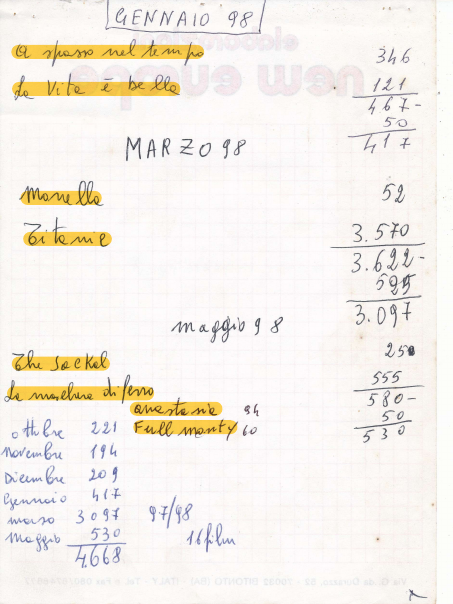 GENNAIO 98
A spasso nel tempo 346
La Vita è bella 121
467-
50
417
MARZO 98
Monella 52
Titanic 3.570
3.622-
525
3.097
maggio 98
The Jackal 25
La maschera di ferro 555
580-
Anastasia 94
50
Full monty 60
530
ottobre 221
Novembre 194
Dicembre 209
Gennaio 417
marzo 3097 97/98
Maggio 530 16 film
4.668